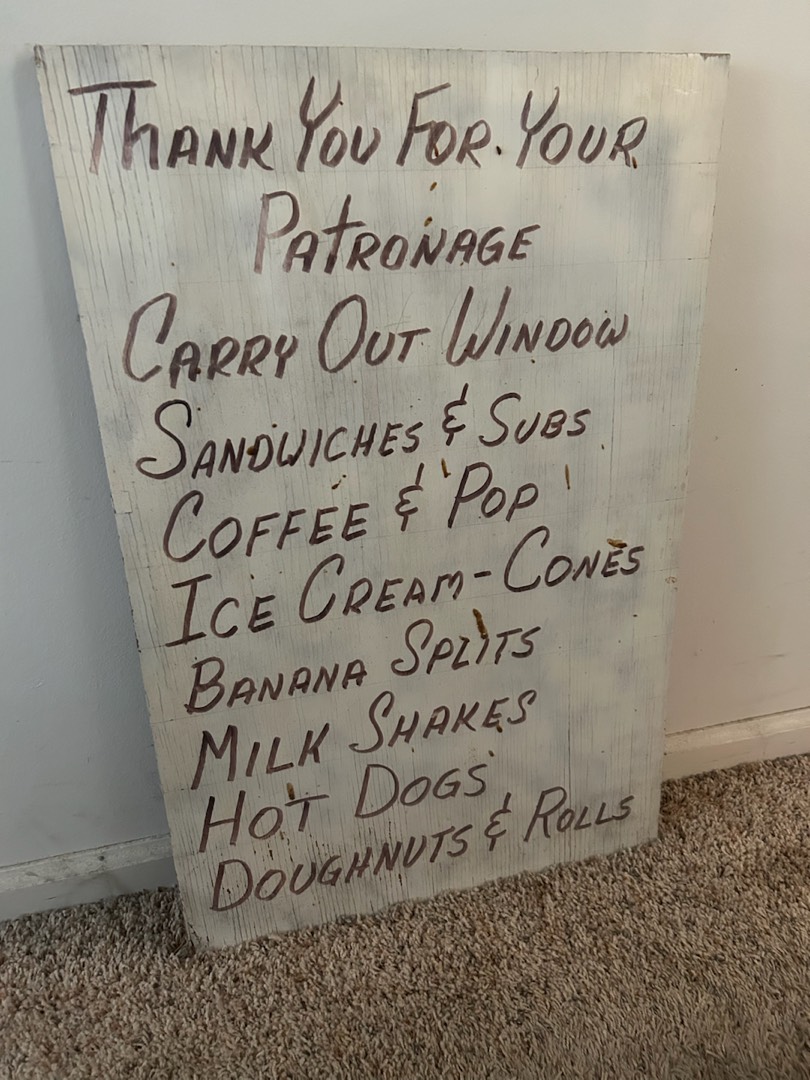 Thank You For Your
Patronage
Carry Out Window
Sandwiches & Subs
Coffee & Pop
Ice Cream-Cones
Banana Splits
Milk Shakes
Hot Dogs
Doughnuts & Rolls